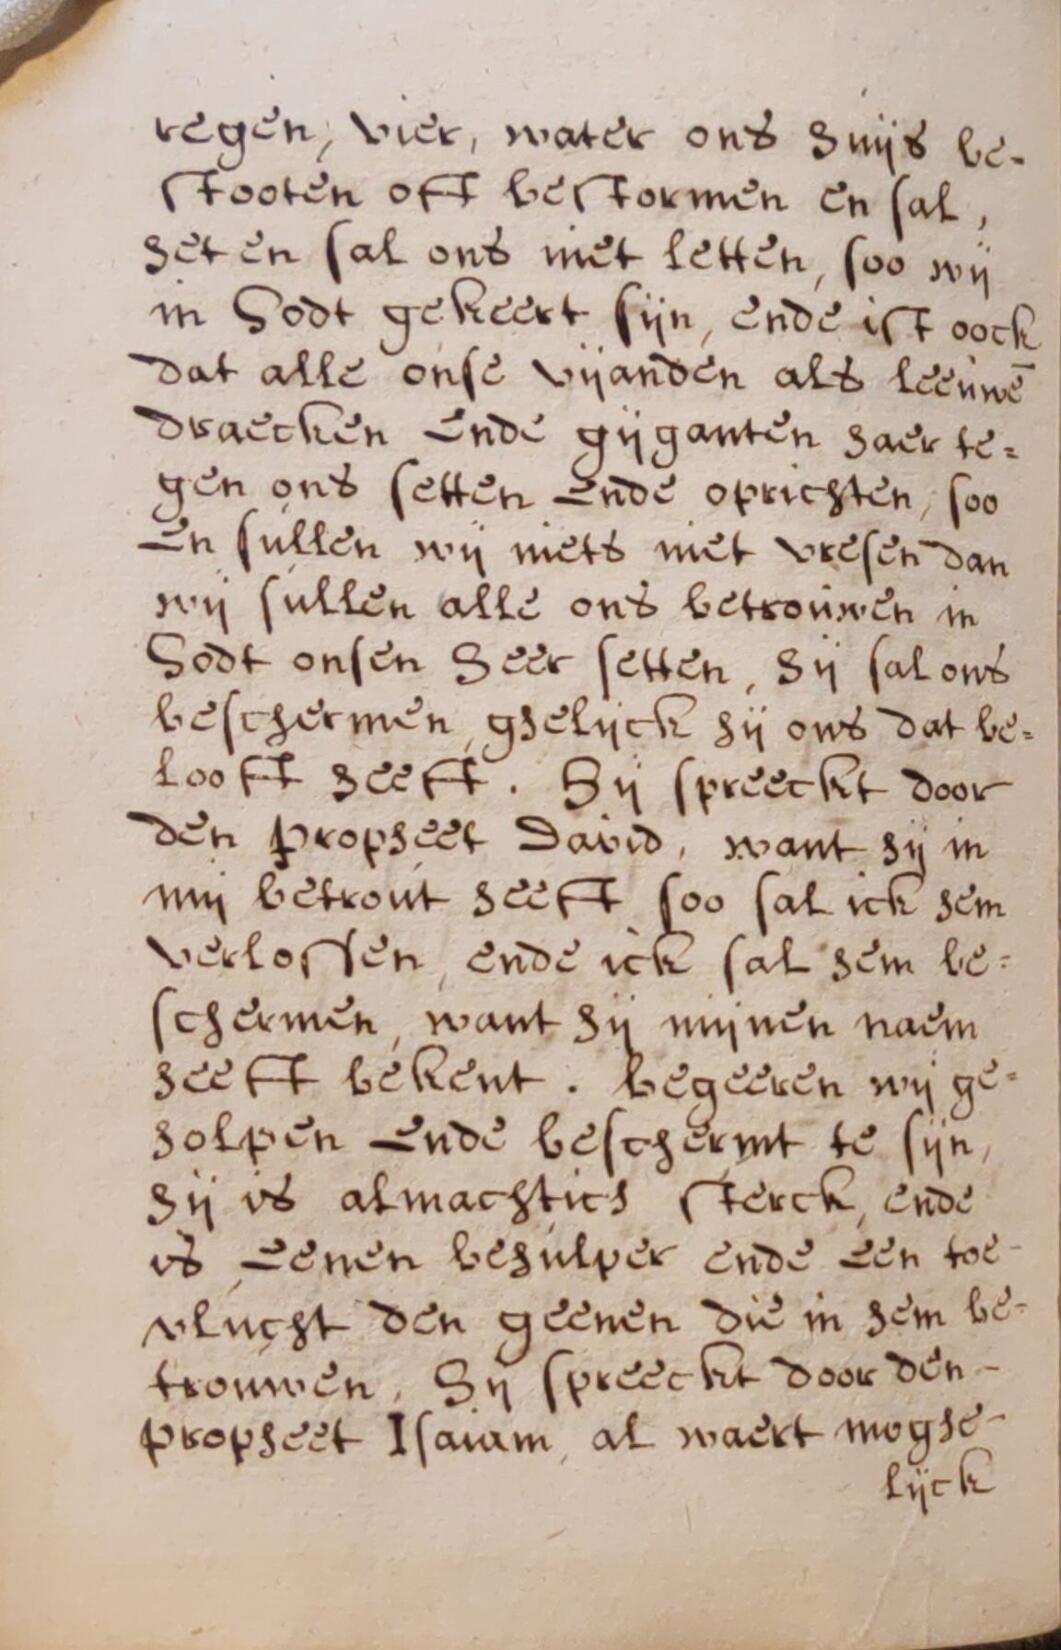 regen, vier, water ons huijs be-
stooten oft bestormen en sal,
het en sal ons niet letten, soo wij
in Godt gekeert sijn, ende ist oock
dat alle onse vijanden als leeuwē
draecken ende gijganten haer te=
gen ons setten ende oprichten, soo
en sullen wij niets niet vresen dan
wij sullen alle ons betrouwen in
Godt onsen Heer setten, hij sal ons
beschermen, ghelijck hij ons dat be=
looft heeft. Hij spreeckt door
den propheet David, want hij in
mij betrout heeft soo sal ick hem
verlossen, ende ick sal hem be=
schermen, want hij mijnen naem
heeft bekent. begeeren wij ge=
holpen ende beschermt te sijn,
hij is almachtich sterck, ende
is eenen behulper ende een toe-
vlucht den geenen die in hem be=
trouwen. Hij spreeckt door den-
propheet Isaiam, al waert moghe-
lijck